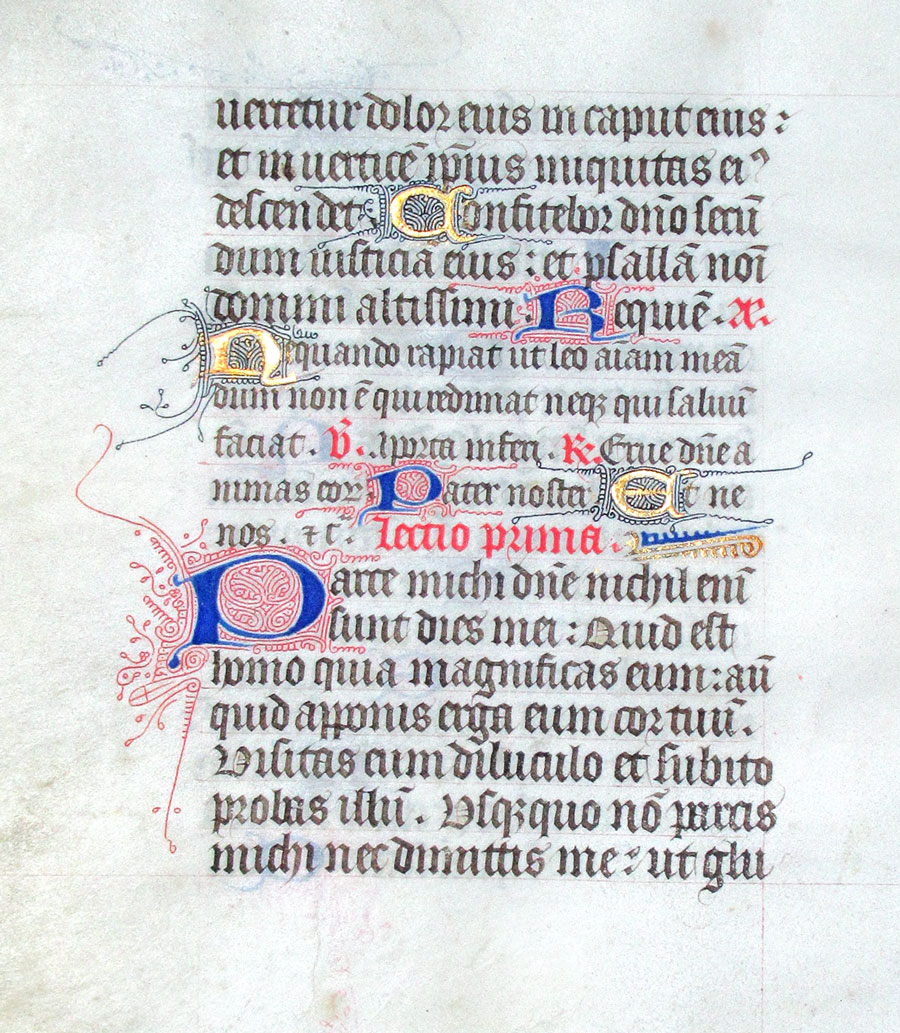 uertetur dolor eius in caput eius :
et in uerticē ip̄ius iniquitas ei⁹
descendet . Confitebor dn̄o secū
dum iusticiā eius : et psallā noī
domini altissimi . Requiē . Añ.
Nequando rapiat ut leo aīam meā
dum non ē qui redimat neqꝫ qui saluū
faciat . V̄. A porta inferi . R̄. Erue dn̄e a
nimas eoꝝ . Pater noster Et ne
nos . ⁊c̄ . Lectio prima .
Parce michi dn̄e nichil enī
sunt dies mei : Quid est
homo quia magnificas eum : aū
quid apponis erga eum cor tuū .
Visitas eum diluculo et subito
probas illū . Vsqꝫquo nō parcis
michi nec dimittis me : ut glu